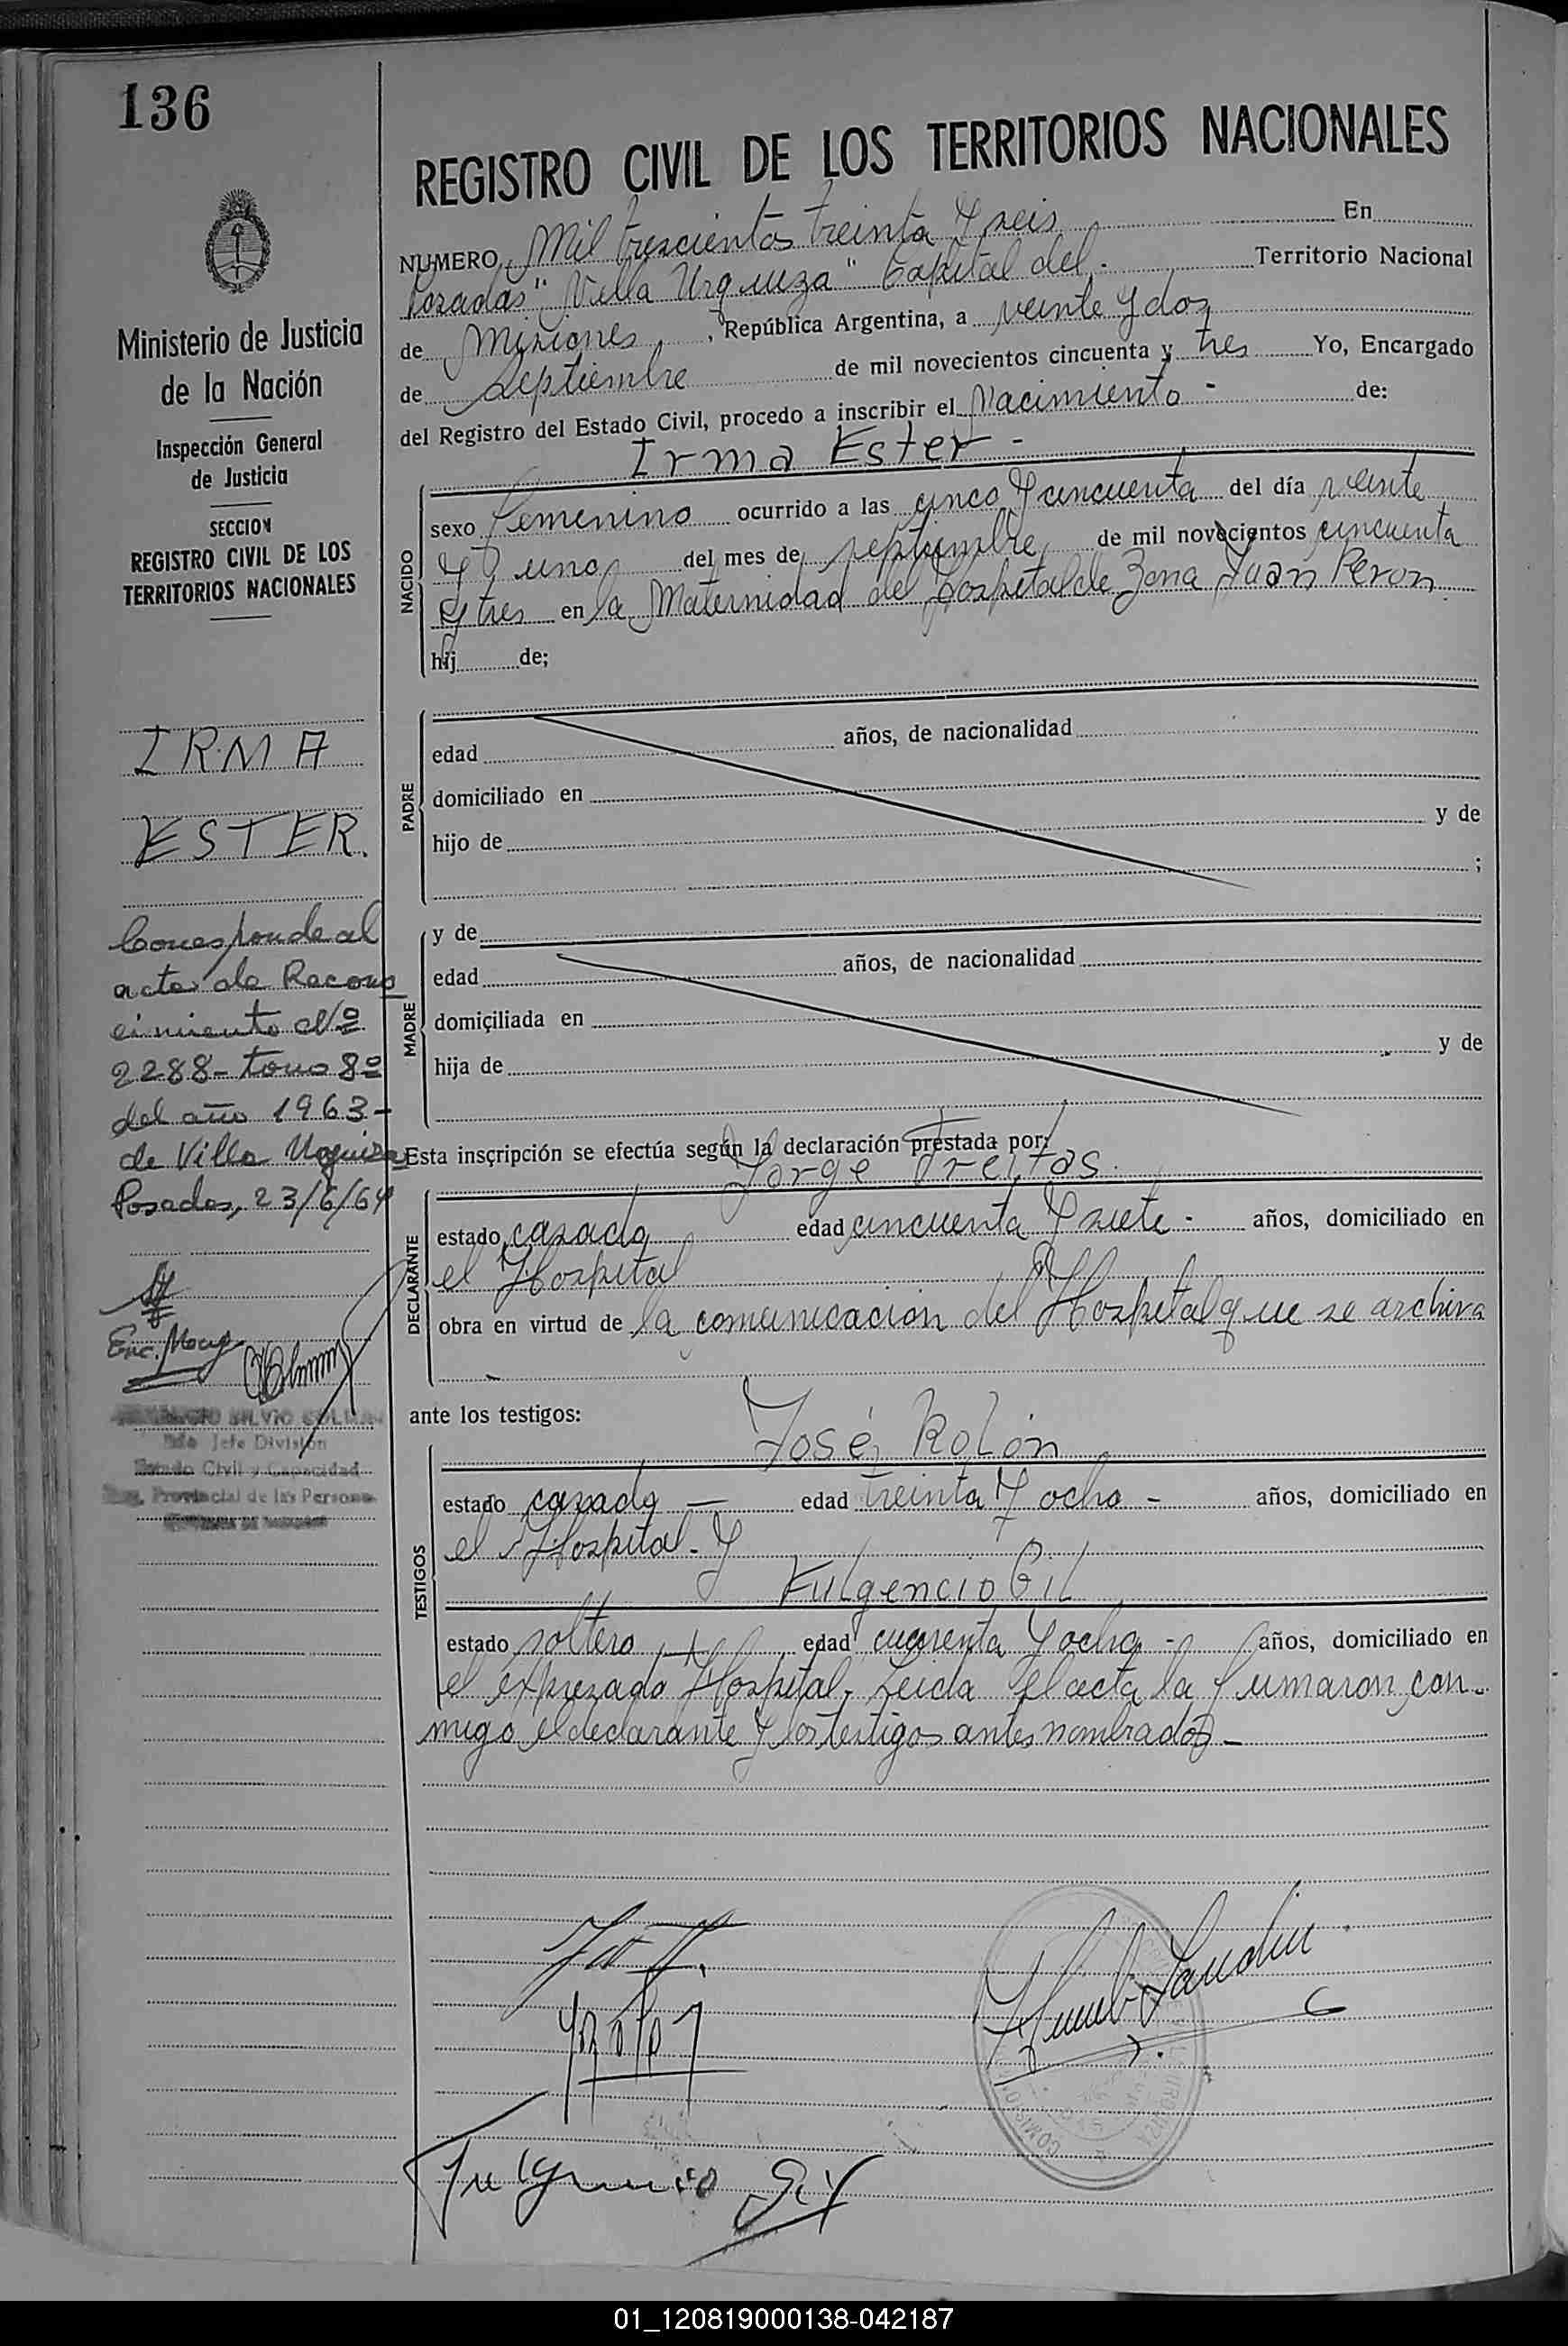 136
REGISTRO CIVIL DE LOS TERRITORIOS NACIONALES
Ministerio de Justicia
de la Nación
Inspección General
de Justicia
SECCION
REGISTRO CIVIL DE LOS
TERRITORIOS NACIONALES
IRMA
ESTER.
Corresponde al
acta de Recono
cimiento Nº
2288 - tomo 8º
del año 1963 -
de Villa Urquiza
Posadas, 23/6/64
Enc.
SILVIO
Jefe División
Estado Civil y Capacidad
Provincial de las Personas
NUMERO Mil trescientos treinta y seis En
Posadas "Villa Urquiza" Capital del Territorio Nacional
de Misiones, República Argentina, a veinte y dos
de Septiembre de mil novecientos cincuenta y tres Yo, Encargado
del Registro del Estado Civil, procedo a inscribir el Nacimiento - de:
Irma Ester -
NACIDO
sexo Femenino ocurrido a las cinco y cincuenta del día veinte
y uno del mes de septiembre de mil novecientos cincuenta
y tres en la Maternidad del Hospital de Zona Juan Peron
hij de;
PADRE
edad años, de nacionalidad
domiciliado en
hijo de y de
;
MADRE
y de
edad años, de nacionalidad
domiciliada en
hija de y de
Esta inscripción se efectúa según la declaración prestada por:
Jorge Freitas.
DECLARANTE
estado casado edad cincuenta y siete - años, domiciliado en
el Hospital
obra en virtud de la comunicación del Hospital que se archiva
ante los testigos:
José Rolón
TESTIGOS
estado casado — edad treinta y ocho - años, domiciliado en
el Hospital - y
Fulgencio Gil
estado soltero edad cuarenta y ocho - años, domiciliado en
el expresado Hospital. Leida el acta la firmaron con-
migo el declarante y los testigos antes nombrados -
Fulgencio Gil
01_120819000138-042187